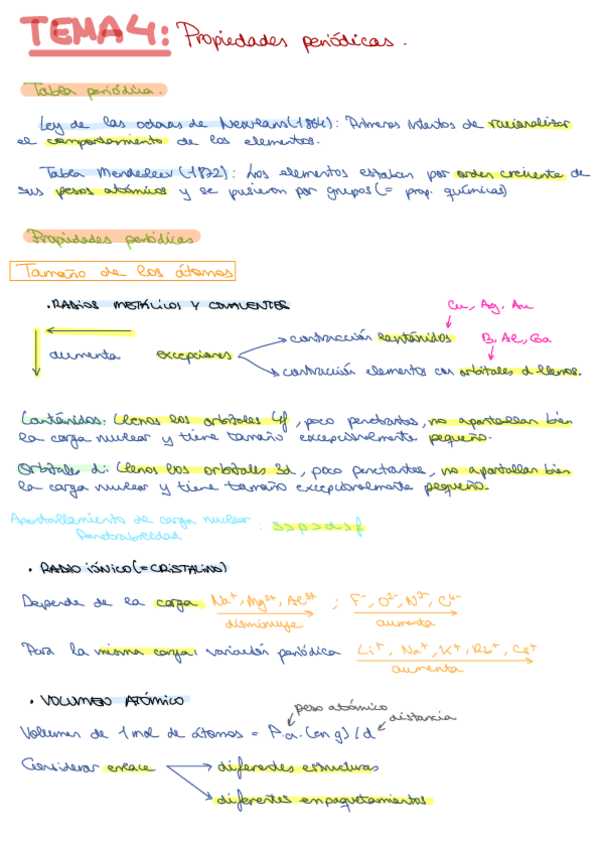 TEMA 4: Propiedades periódicas.
Tabla periódica.
Ley de las octavas de Newlann (1864): Primeros intentos de racionalizar
el comportamiento de los elementos.
Tabla Mendeleev (1872): Los elementos estaban por orden creciente de
sus pesos atómicos y se pusieron por grupos (= prop. químicas)
Propiedades periódicas
Tamaño de los átomos
· RADIOS METÁLICOS Y COVALENTES
Cu, Ag, Au
contracción lantánidos
B, Al, Ga
aumenta excepciones
contracción elementos con orbitales d llenos.
Lantánidos: llenos los orbitales 4f, poco penetrantes, no apantallan bien
la carga nuclear y tiene tamaño excepcionalmente pequeño.
Orbitales d: llenos los orbitales 3d, poco penetrantes, no apantallan bien
la carga nuclear y tiene tamaño excepcionalmente pequeño.
Apantallamiento de carga nuclear : s>p>d>f
Penetrabilidad
· RADIO IÓNICO (= CRISTALINO)
Depende de la carga Na⁺, Mg²⁺, Al³⁺ ; F⁻, O²⁻, N³⁻, C⁴⁻
disminuye aumenta
Para la misma carga, variación periódica Li⁺, Na⁺, K⁺, Rb⁺, Cs⁺
aumenta
· VOLUMEN ATÓMICO
peso atómico
distancia
Volumen de 1 mol de átomos = P.a. (en g) / d
Considerar enlace diferentes estructuras
diferentes empaquetamientos